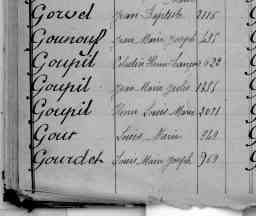 Gorvel Jean Baptiste 2115
Gounouf Jean Marie Joseph 495
Goupil Célestin Henri François 622
Goupil Jean Marie Jules 1255
Goupil Henri Louis Marie 2011
Gour Louis Marie 240
Gourdet Louis Marie Joseph 769